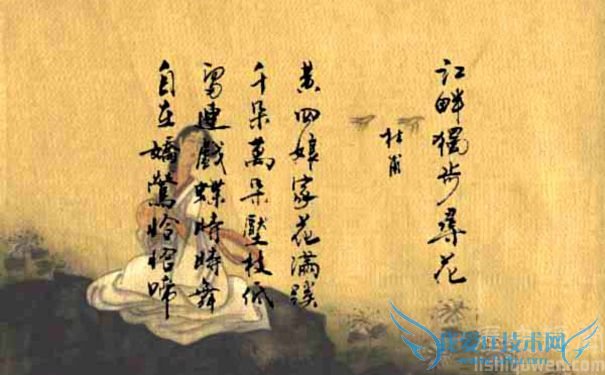 江畔獨步尋花
杜甫
黃四娘家花滿蹊
千朵萬朵壓枝低
留連戲蝶時時舞
自在嬌鶯恰恰啼
我爱IT技术网